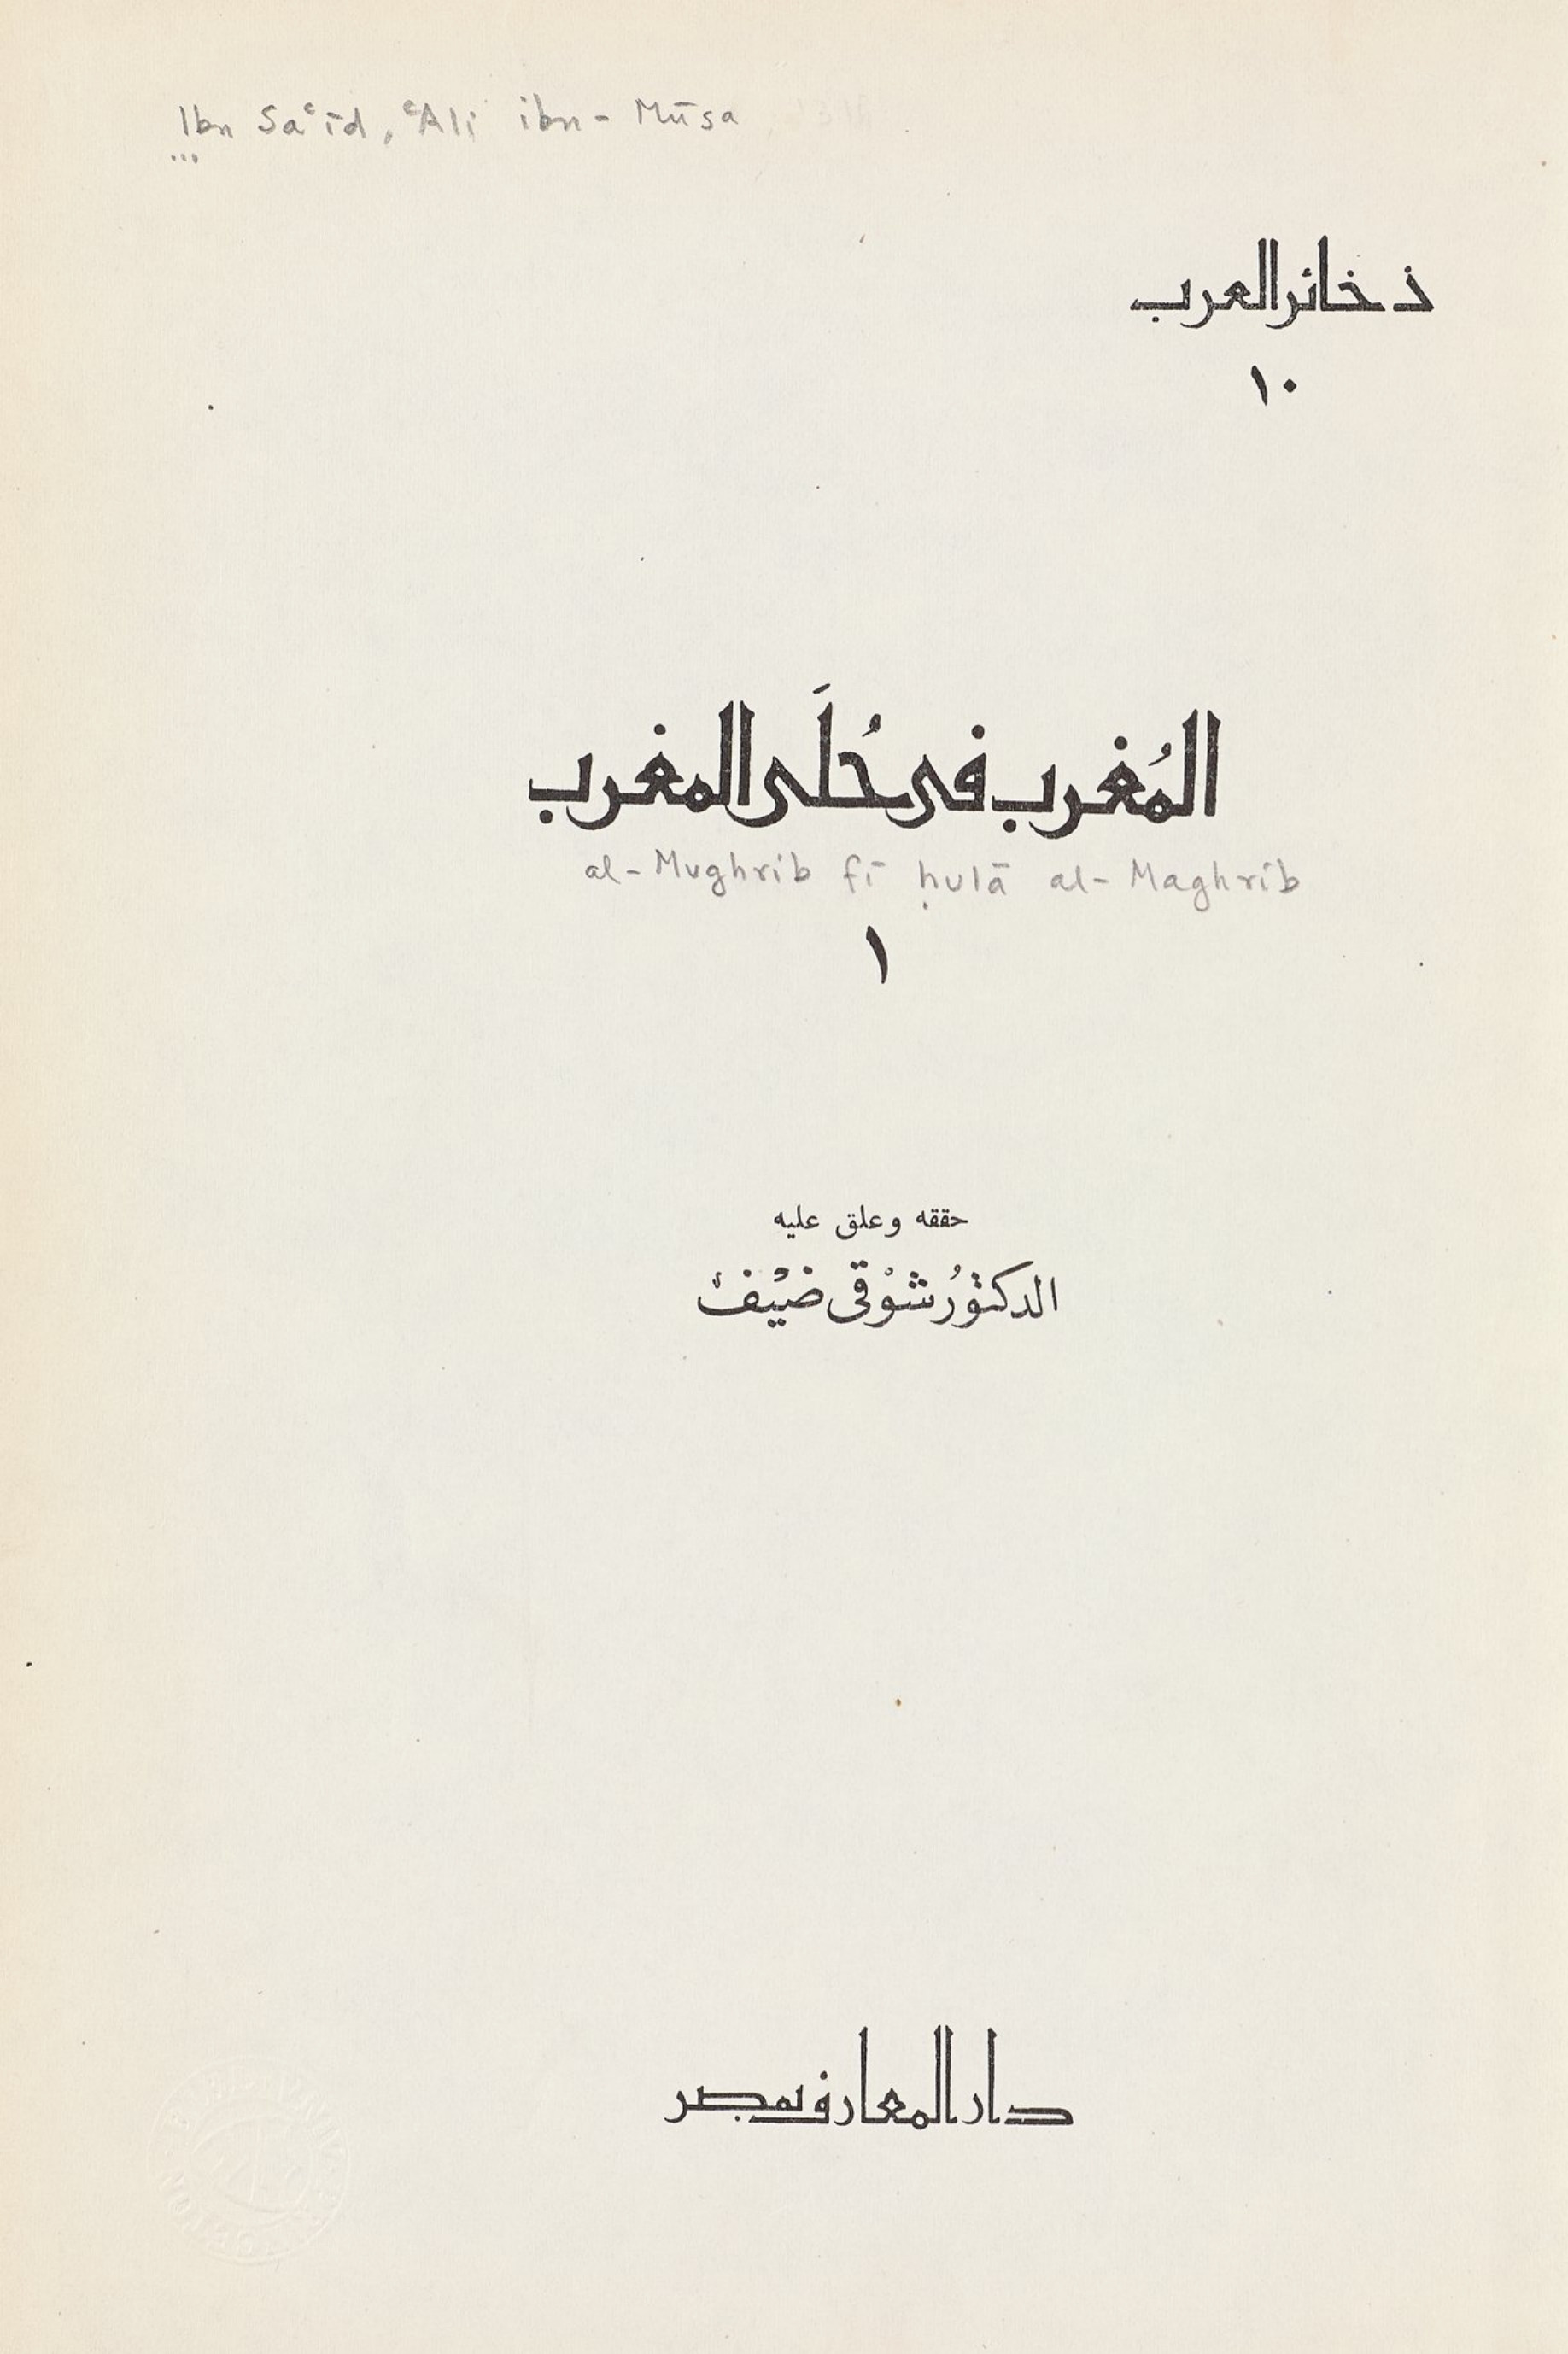 Ibn Saʿīd, ʿAli ibn- Mūsa
...
ذخائر العرب
١٠
المُغرب في حُلَى المغرب
al-Mughrib fī ḥulā al-Maghrib
١
حققه وعلق عليه
الدكتُور شوْقى ضيْف
دار المعارف بمصر